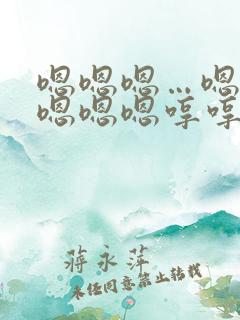 嗯嗯嗯…嗯
嗯嗯嗯哼哼
蒋永萍
未经同意禁止转载